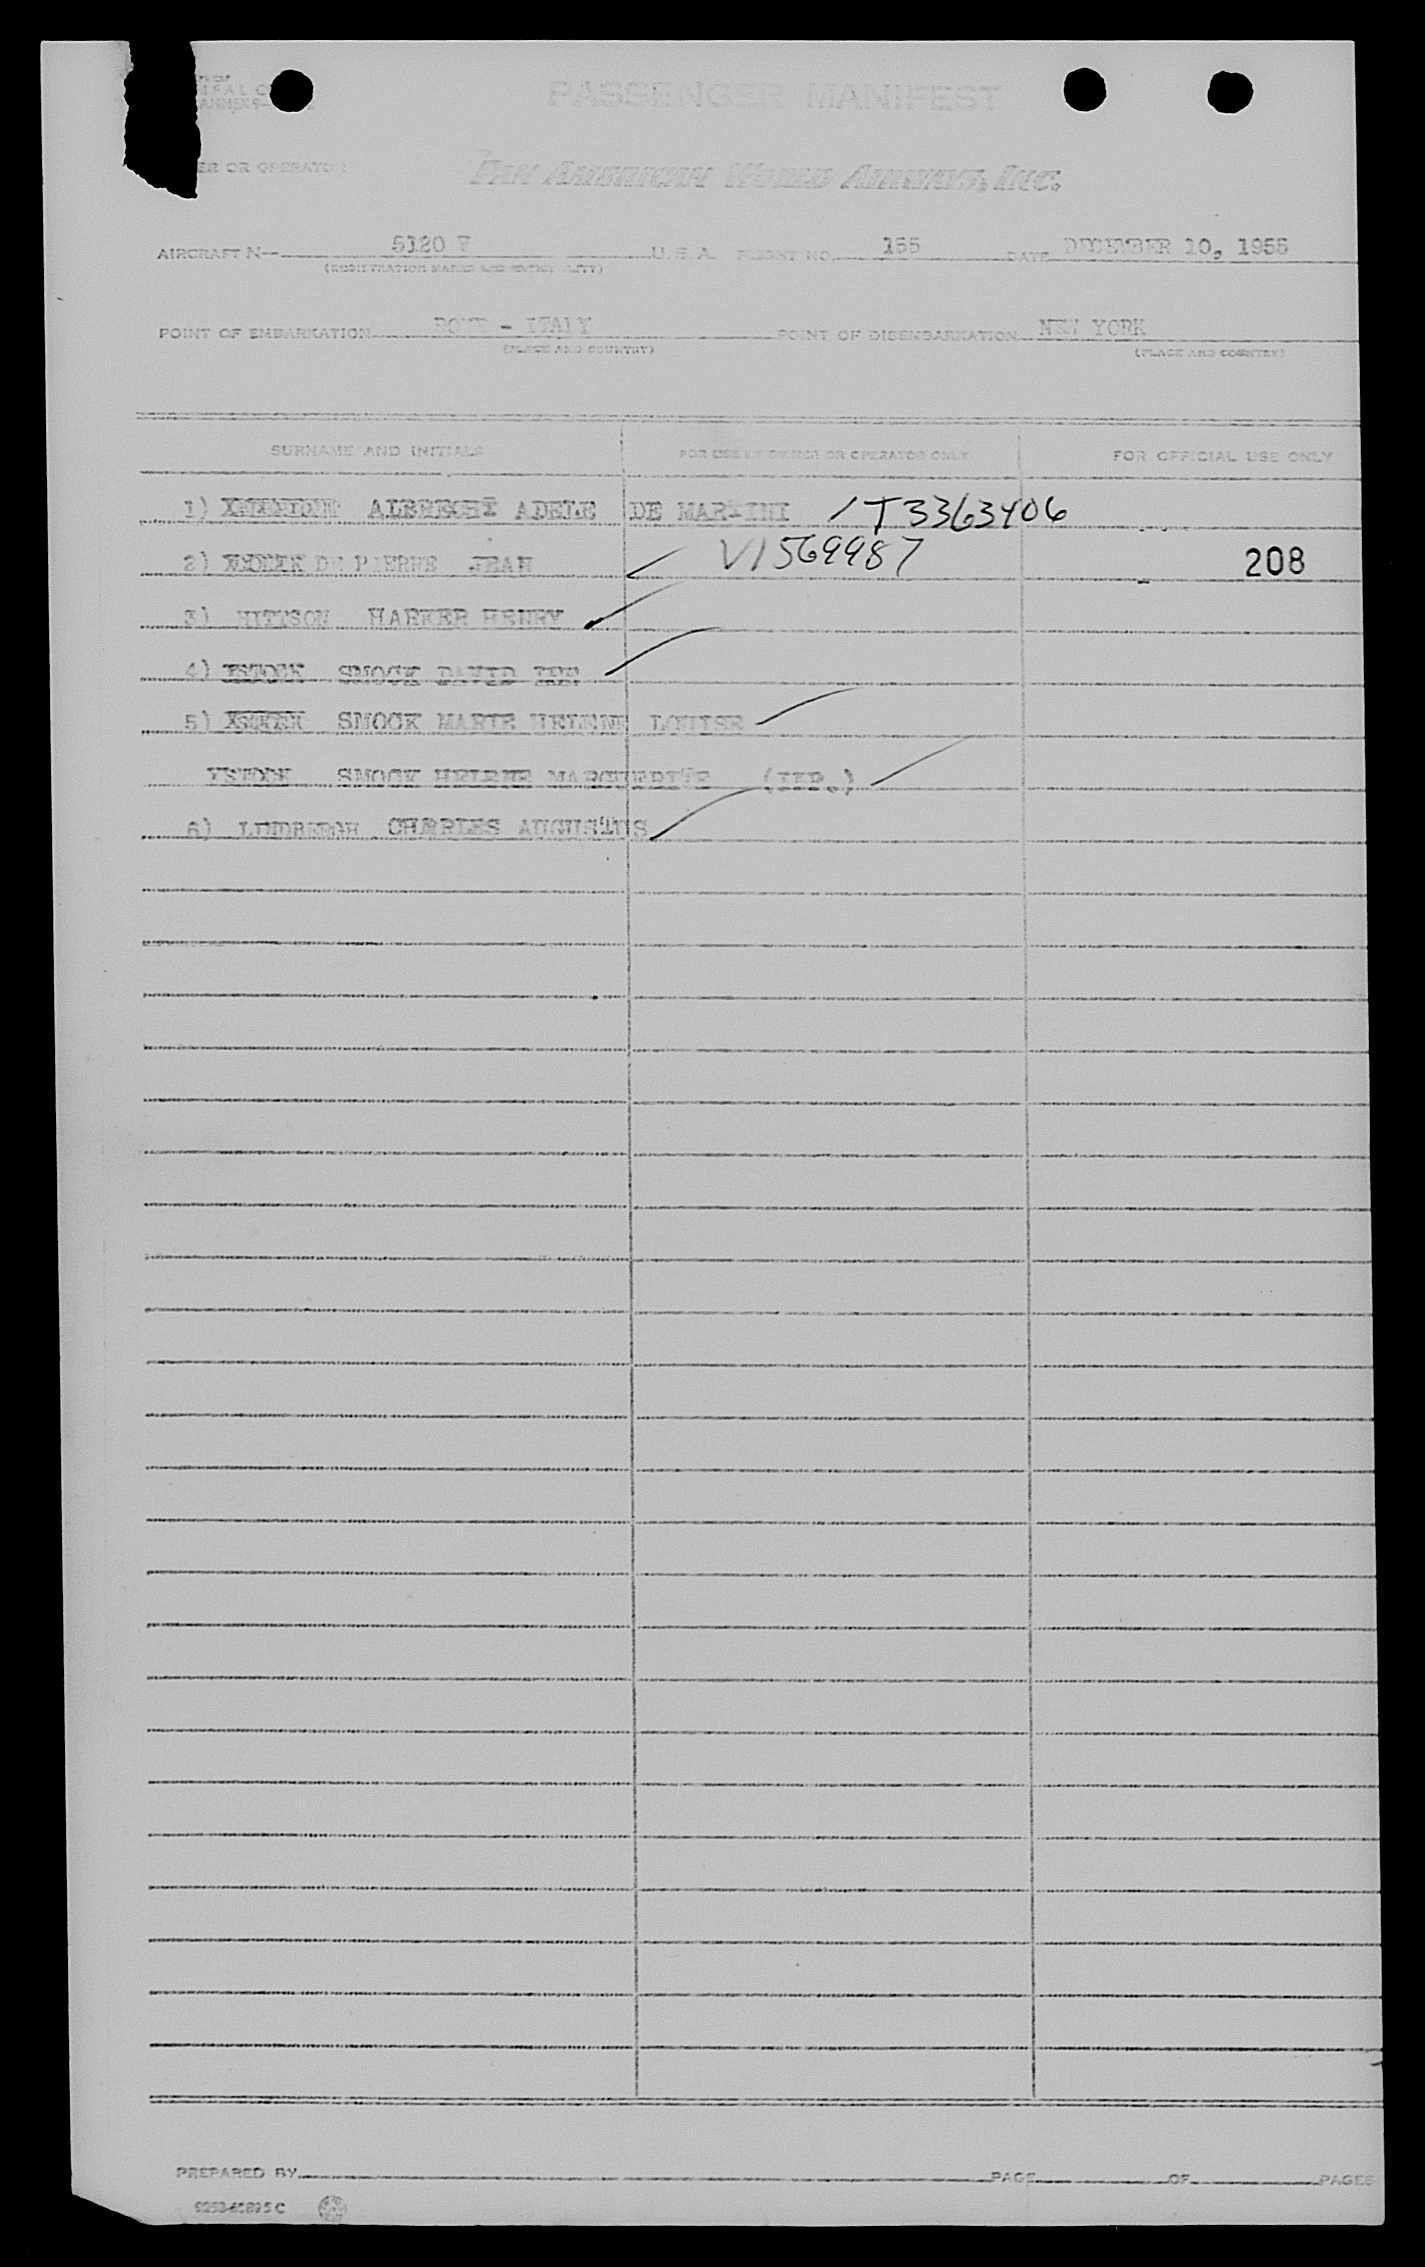 PASSENGER MANIFEST
OR OPERATOR
PAN AMERICAN WORLD AIRWAYS, INC.
AIRCRAFT N— 5120 V U. S. A. FLIGHT NO. 155 DATE DECEMBER 10, 1955
(REGISTRATION MARKS AND NATIONALITY)
POINT OF EMBARKATION ROME - ITALY POINT OF DISEMBARKATION NEW YORK
(PLACE AND COUNTRY) (PLACE AND COUNTRY)
SURNAME AND INITIALS FOR USE BY OWNER OR OPERATOR ONLY FOR OFFICIAL USE ONLY
1) ALBRECHT ADELE DE MARTINI / T3363406
2) DE PIERRE JEAN V1569987 208
3) HITTSON HARKER HENRY
4) SMOCK DAVID LEE
5) SMOCK MARIE HELENE LOUISE
SMOCK HELENE MARGUERITE (INF.)
6) LINDBERGH CHARLES AUGUSTUS
PREPARED BY PAGE OF PAGES